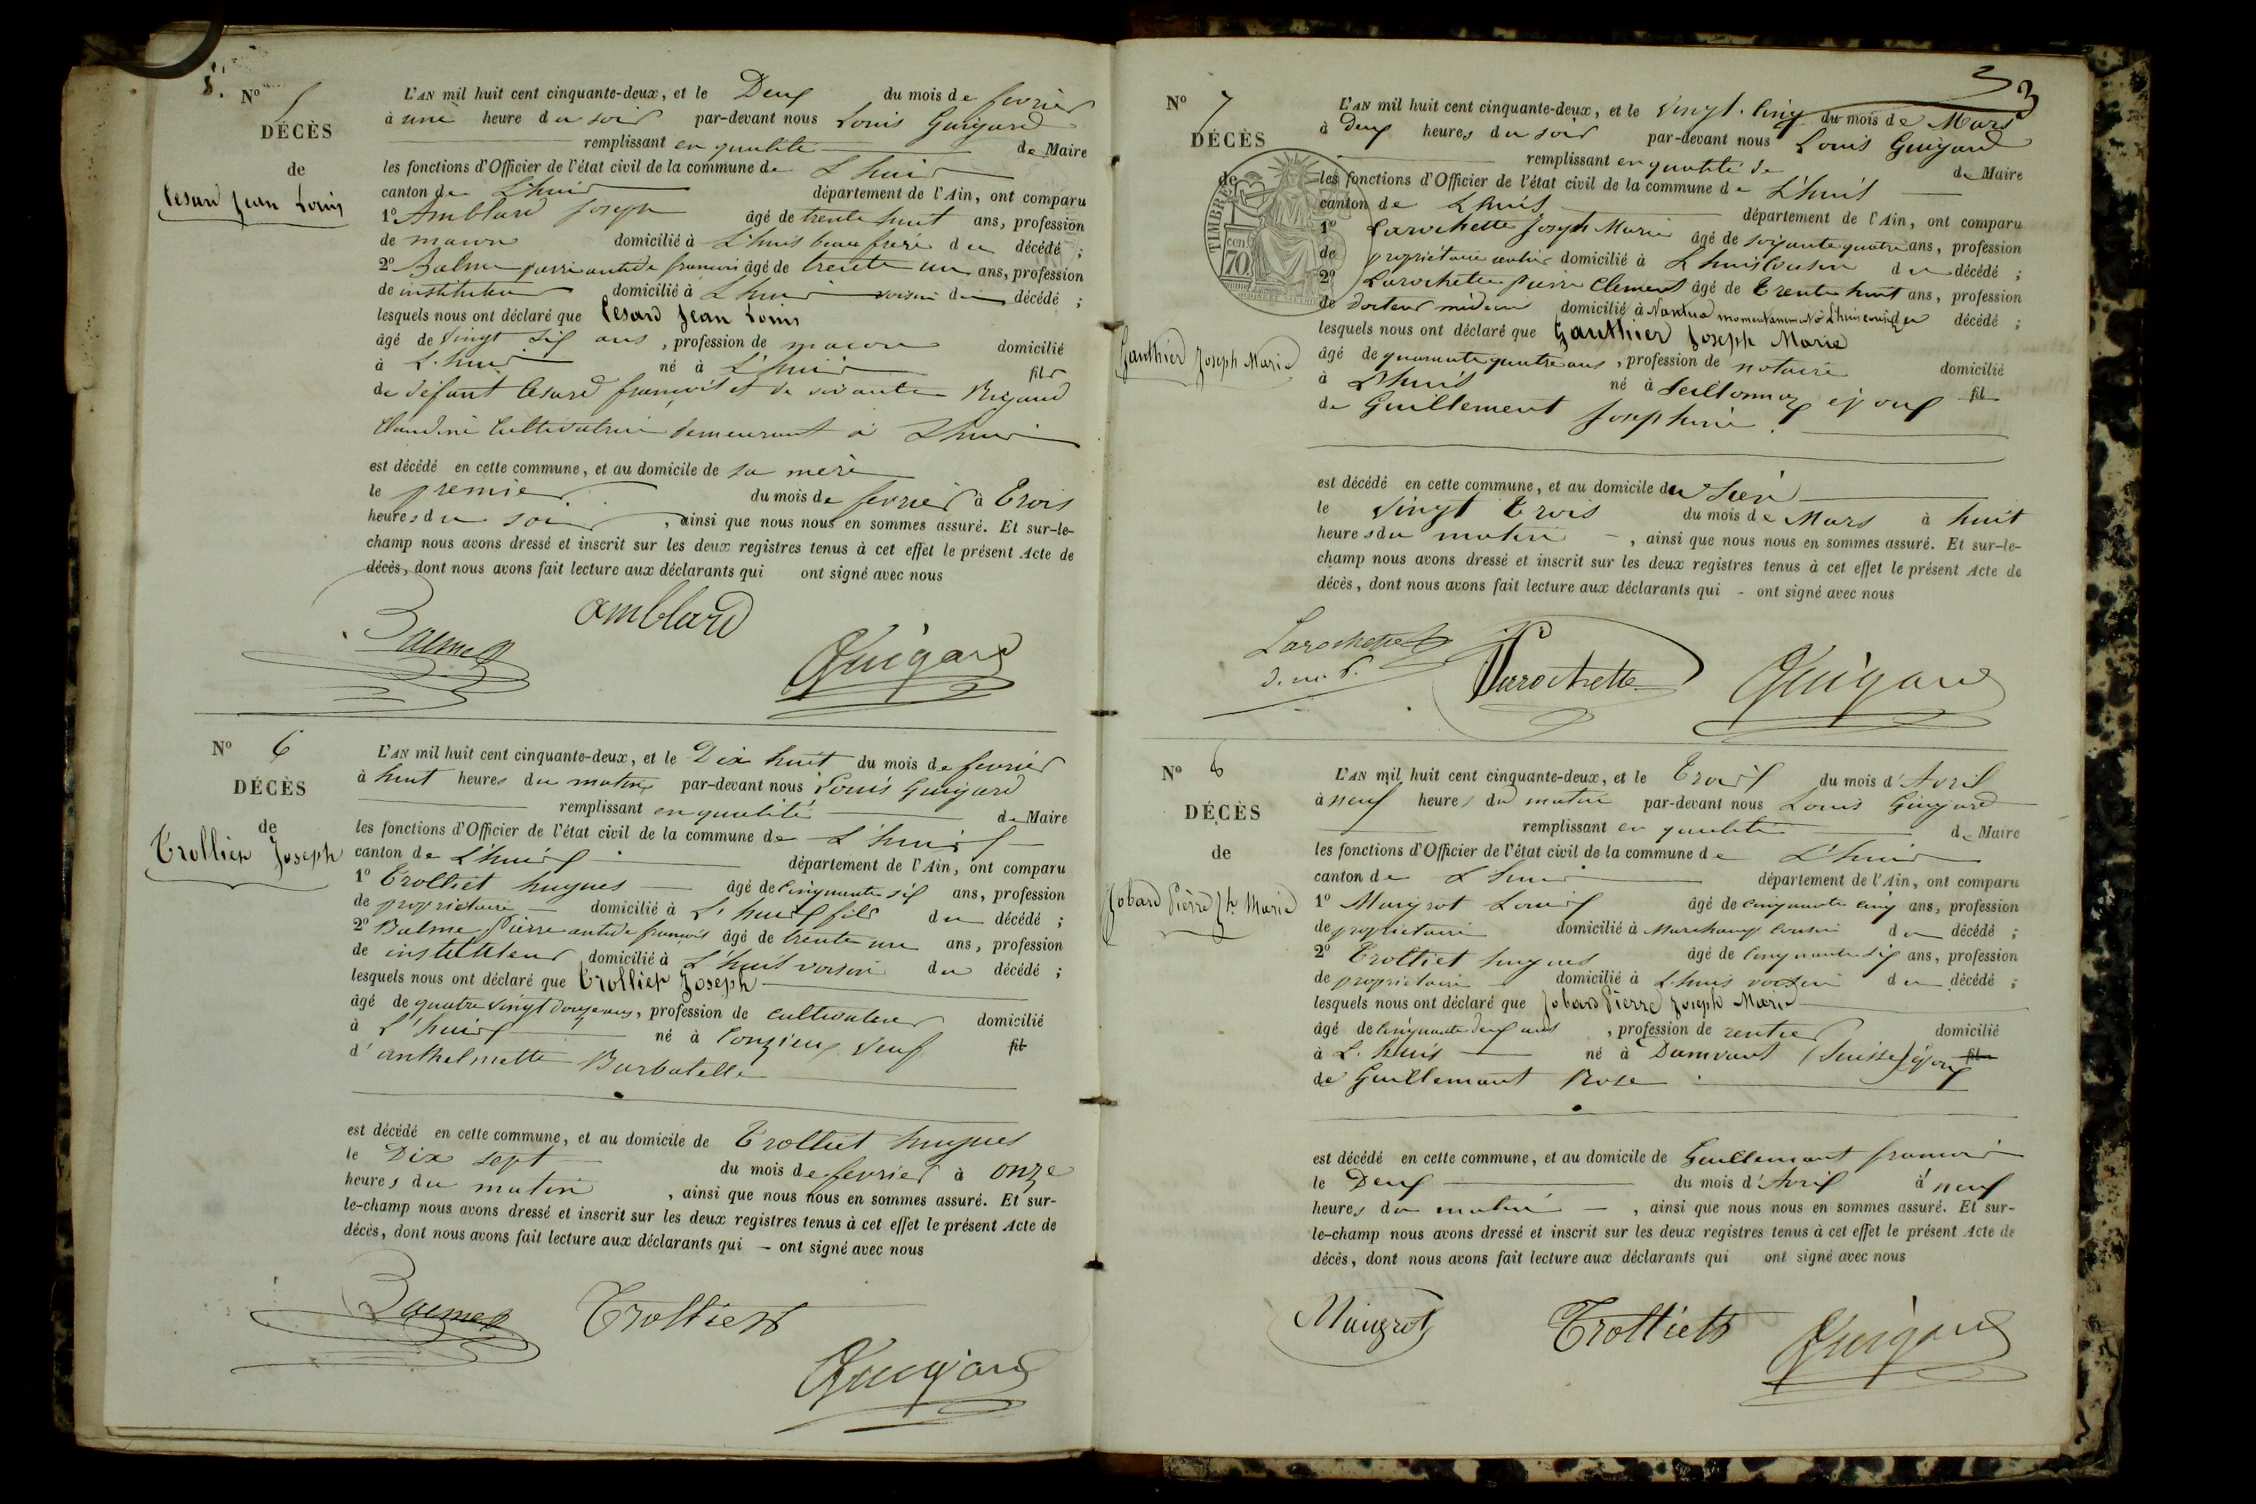 8.
N° 5
DÉCÈS
de
Cesard Jean Louis
L'AN mil huit cent cinquante-deux, et le Deux du mois de fevrier
à une heure du soir par-devant nous Louis Guigard
remplissant en qualité de Maire
les fonctions d'Officier de l'état civil de la commune de L'huis
canton de L'huis département de l'Ain, ont comparu
1° Amblard Joseph âgé de trente huit ans, profession
de macon domicilié à L'huis beau frere du décédé ;
2° Balme pierre antide francois âgé de trente un ans, profession
de instituteur domicilié à L'huis voisin du décédé ;
lesquels nous ont déclaré que Cesard Jean Louis
âgé de vingt six ans, profession de macon domicilié
à L'huis né à L'huis fils
de défunt Cesard françois et de vivante Rigaud
Claudine Cultivatrice demeurant à L'huis
est décédé en cette commune, et au domicile de sa mère
le premier du mois de fevrier à Trois
heures du soir, ainsi que nous nous en sommes assuré. Et sur-le-
champ nous avons dressé et inscrit sur les deux registres tenus à cet effet le présent Acte de
décès, dont nous avons fait lecture aux déclarants qui ont signé avec nous
Balme amblard Guigard
N° 6
DÉCÈS
de
Trolliet Joseph
L'AN mil huit cent cinquante-deux, et le Dix huit du mois de fevrier
à huit heures du matin par-devant nous Louis Guigard
remplissant en qualité de Maire
les fonctions d'Officier de l'état civil de la commune de L'huis
canton de L'huis département de l'Ain, ont comparu
1° Trolliet hugues âgé de Cinquante six ans, profession
de proprietaire domicilié à L'huis fils du décédé ;
2° Balme Pierre antide françois âgé de trente un ans, profession
de instituteur domicilié à L'huis voisin du décédé ;
lesquels nous ont déclaré que Trolliet Joseph
âgé de quatre vingt douze ans, profession de cultivateur domicilié
à L'huis né à Conzieu veuf fil
d'anthelmette Barbatelle
est décédé en cette commune, et au domicile de Trolliet hugues
le Dix sept du mois de fevrier à onze
heures du matin, ainsi que nous nous en sommes assuré. Et sur-
le-champ nous avons dressé et inscrit sur les deux registres tenus à cet effet le présent Acte de
décès, dont nous avons fait lecture aux déclarants qui – ont signé avec nous
Balme Trolliet
Guigard
3
N° 7
DÉCÈS
de
TIMBRE
70
Gauthier Joseph Marie
L'AN mil huit cent cinquante-deux, et le vingt-Cinq du mois de Mars
à Deux heures du soir par-devant nous Louis Guigard
remplissant en qualité de de Maire
les fonctions d'Officier de l'état civil de la commune de L'huis
canton de L'huis département de l'Ain, ont comparu
1° Larochette Joseph Marie âgé de soixante quatre ans, profession
de proprietaire rentier domicilié à L'huis Cousin du décédé ;
2° Larochette Pierre Clement âgé de Trente huit ans, profession
de docteur médecin domicilié à Nantua momentanément à L'huis cousin du décédé ;
lesquels nous ont déclaré que Gauthier Joseph Marie
âgé de quarante quatre ans, profession de notaire domicilié
à L'huis né à Seillonnaz époux fil
de Guillement Josephine
est décédé en cette commune, et au domicile du Sien
le vingt Trois du mois de Mars à huit
heures du matin –, ainsi que nous nous en sommes assuré. Et sur-le-
champ nous avons dressé et inscrit sur les deux registres tenus à cet effet le présent Acte de
décès, dont nous avons fait lecture aux déclarants qui - ont signé avec nous
Larochette
d. m. p. Larochette Guigard
N° 8
DÉCÈS
de
Jobard Pierre Jh Marie
L'AN mil huit cent cinquante-deux, et le Trois du mois d'Avril
à neuf heures du matin par-devant nous Louis Guigard
remplissant en qualité de Maire
les fonctions d'Officier de l'état civil de la commune de L'huis
canton de L'huis département de l'Ain, ont comparu
1° Maigrot Louis âgé de cinquante cinq ans, profession
de proprietaire domicilié à Marchamp Cousin du décédé ;
2° Trolliet hugues âgé de Cinquante six ans, profession
de proprietaire domicilié à L'huis voisin du décédé ;
lesquels nous ont déclaré que Jobard Pierre Joseph Marie
âgé de Cinquante deux ans, profession de rentier domicilié
à L'huis né à Damvant (Suisse) époux fil
de Guillemant Rose
est décédé en cette commune, et au domicile de Guillemant francois
le Deux du mois d'Avril à neuf
heures du matin –, ainsi que nous nous en sommes assuré. Et sur-
le-champ nous avons dressé et inscrit sur les deux registres tenus à cet effet le présent Acte de
décès, dont nous avons fait lecture aux déclarants qui ont signé avec nous
Maigrot Trolliet Guigard